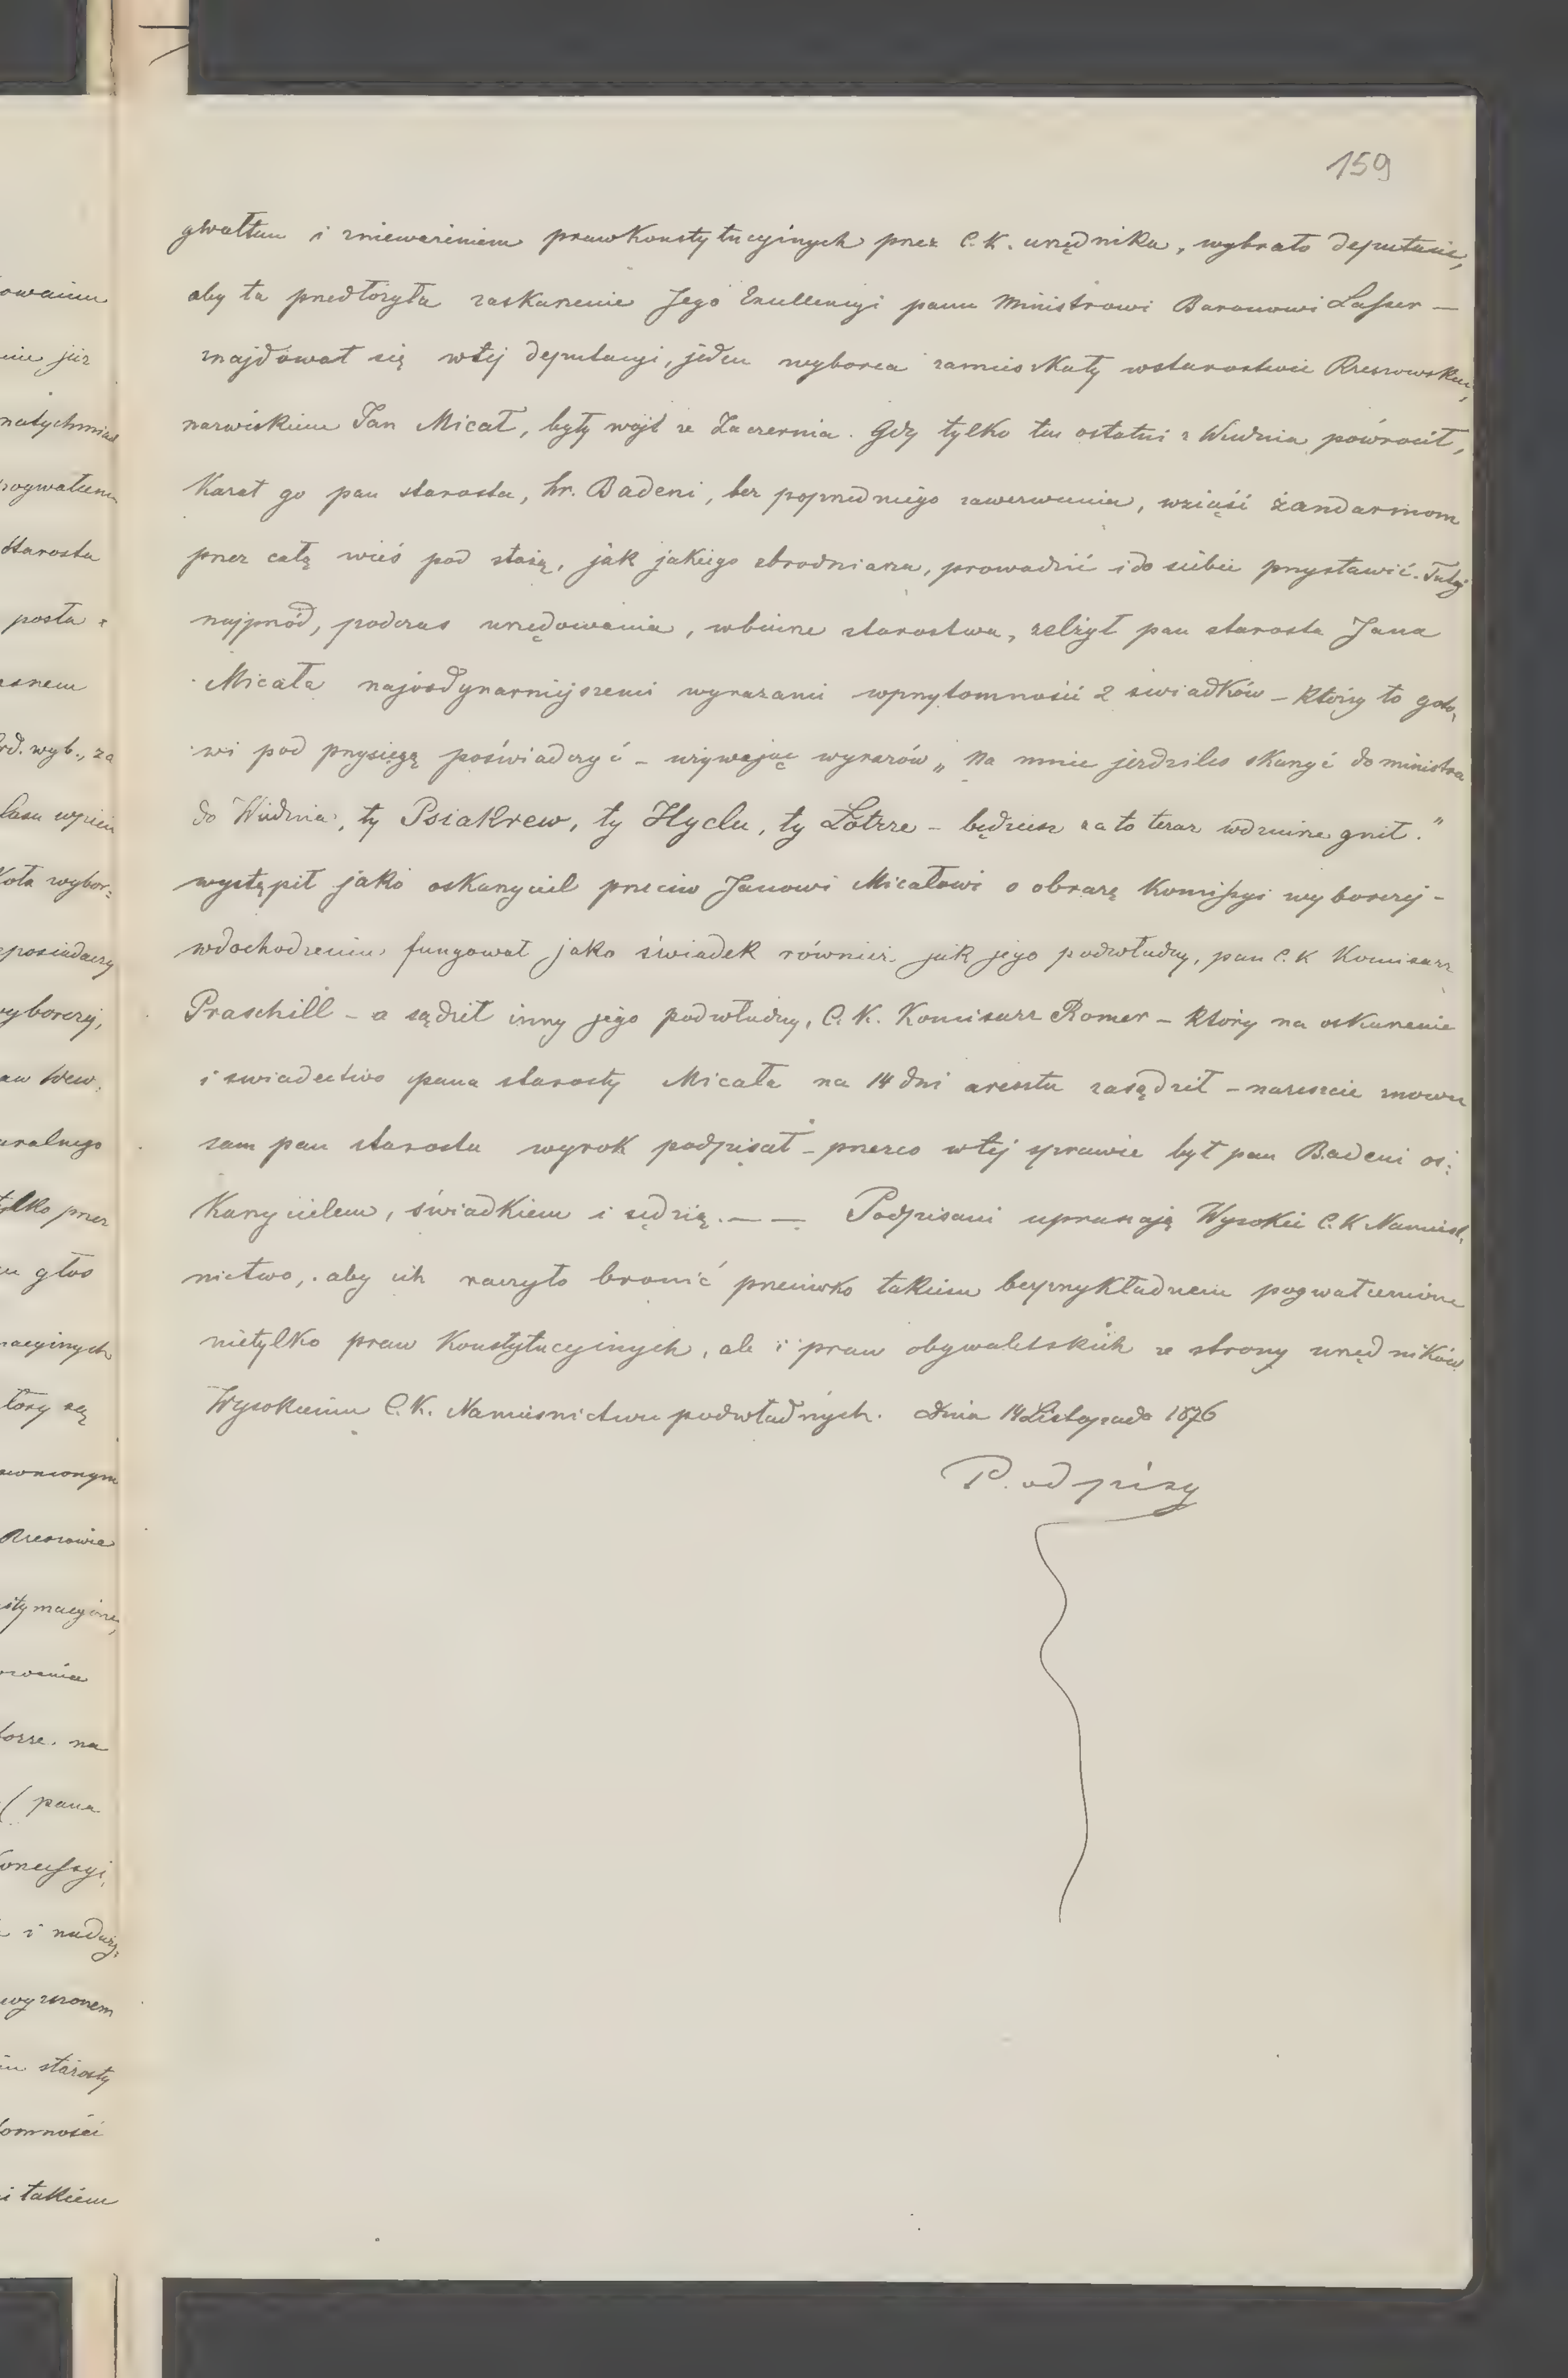 159
gwałtem i zniewarzeniem praw konstytucyjnych przez C. K. urzędnika, wybrało deputacię,
aby ta przedłożyła zaskarzenie Jego Excellencyi panu Ministrowi Baronowi Lasser —
znajdował się wtéj deputacyi, jeden wyborca zamieszkały wstarostwie Rzeszowskiem,
nazwiskiem Jan Micał, były wójt ze Zaczernia. Gdy tylko ten ostatni z Wiednia powrócił,
Kazał go pan starosta, hr. Badeni, bez poprzedniego zawezwania, wziąść żandarmom
przez całą wieś pod strażą, jak jakiego zbrodniarza, prowadzić i do siebie przystawić. Tutaj
najprzód, podczas urzędowania, wbiurze starostwa, zelżył pan starosta Jana
Micała najordynarniejszemi wyrazami wprzytomności 2 świadków – którzy to goto,
wi pod przysięgą poświadczyć – używając wyrazów „Na mnie jeździłeś skarzyć do ministra
do Wiednia, ty Psiakrew, ty Hyclu, ty Łotrze – będziesz za to teraz wdziurze gnił."
wystąpił jako oskarzyciel przeciw Janowi Micałowi o obrazę Komissyi wyborczej –
wdochodzeniu fungował jako świadek również jak jego podwładny, pan C. K Komisarz
Praschill – a sądził inny jego podwładny, C. K. Komisarz Romer – który na oskarzenie
i swiadectwo pana starosty Micała na 14 dni aresztu zasądził – nareszcie znowu
sam pan starosta wyrok podpisał – przezco wtéj sprawie był pan Badeni os:
karzycielem, świadkiem i sędzią. — — Podpisani upraszają Wysokie C. K Namiest,
nictwo, aby ich raczyło bronić przeciwko takiemu bezprzykładnemu pogwałceniu
nietylko praw Konstytucyjnych, ale i praw obywatelskich ze strony urzędników
Wysokiemu C. K. Namiesnictwu podwładnych. Dnia 14 Listopada 1876
Podpisy